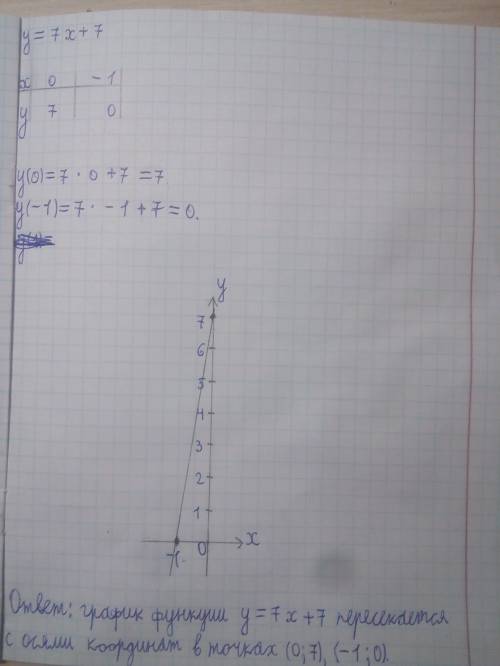 y = 7x + 7
x 0 -1
y 7 0
y(0) = 7 · 0 + 7 = 7
y(-1) = 7 · -1 + 7 = 0.
y
7
6
5
4
3
2
1
-1 0 x
Ответ: график функции y = 7x + 7 пересекается
с осями координат в точках (0; 7), (-1; 0).